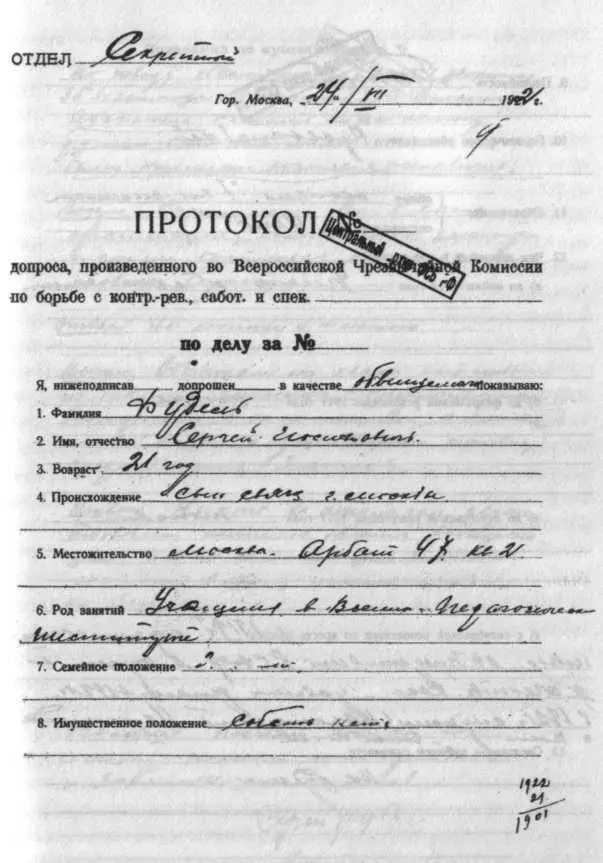 ОТДЕЛ Секретный
Гор. Москва, 24/VII 1922г.
ПРОТОКОЛ
Центральный архив ФСБ РФ
допроса, произведенного во Всероссийской Чрезвычайной Комиссии
по борьбе с контр.-рев., сабот. и спек.
по делу за №
Я, нижеподписав допрошен в качестве обвиняемого показываю:
1. Фамилия Фудель
2. Имя, отчество Сергей Иосифович.
3. Возраст. 21 год
4. Происхождение сын свящ г. Москвы
5. Местожительство Москва. Арбат 47 кв 2
6. Род занятий Учащийся в Военно-Педагогическом
институте.
7. Семейное положение
8. Имущественное положение нет
1922
21
1901